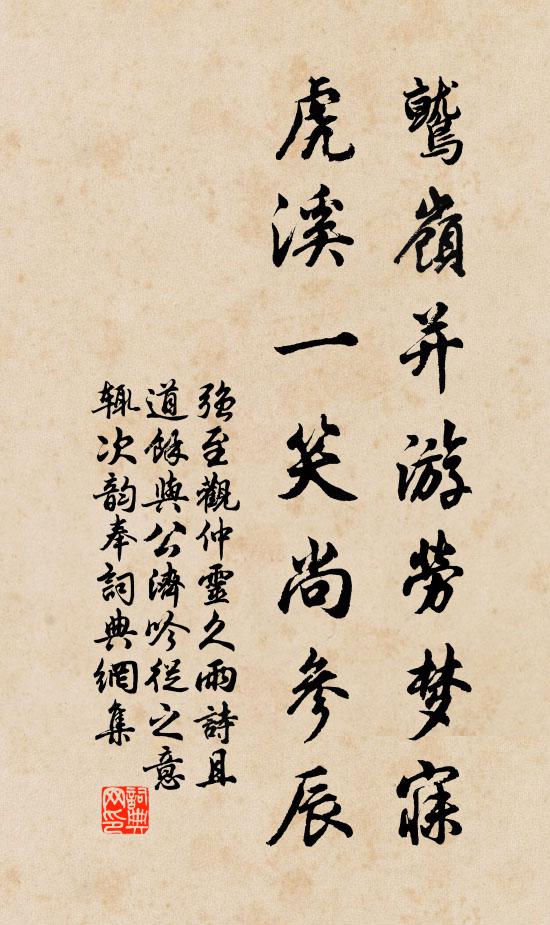 鷲嶺并游勞梦寐
虎溪一笑尚參辰
強至觀仲靈久雨詩且
道餘與公濟吟從之意
輒次韵奉詞典網集
詞典
网印